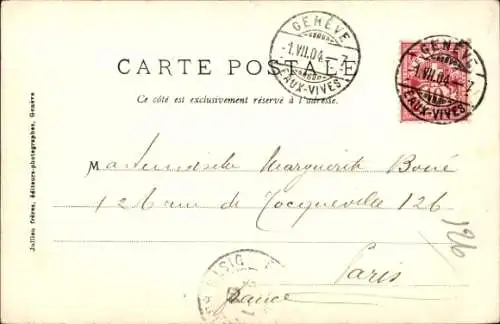 GENÈVE
-1.VII.04.-7
EAUX-VIVES
GENÈVE
-1.VII.04.-7
EAUX-VIVES
CARTE POSTALE
Ce côté est exclusivement réservé à l'adresse.
Jullien frères, éditeurs-photographes, Genève
Mademoiselle Marguerite Boué
126 rue de Tocqueville 126
Paris
france
126